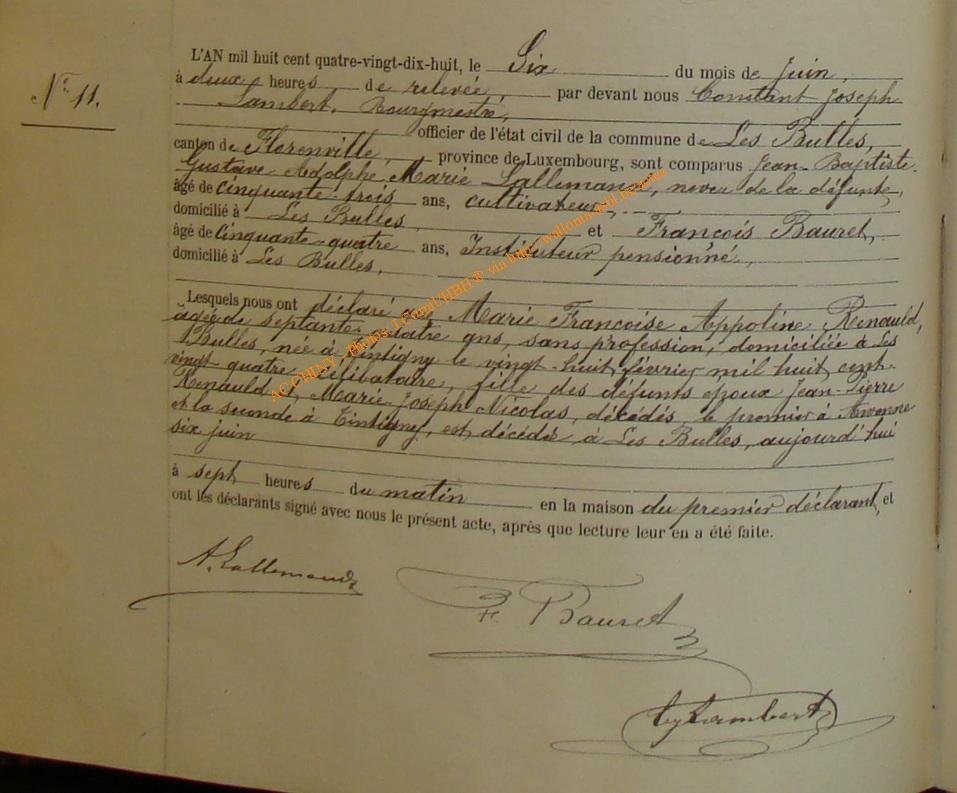 N° 11.
L'AN mil huit cent quatre-vingt-dix-huit, le Six du mois de Juin,
à deux heures de relevée, par devant nous Constant Joseph
Lambert, Bourgmestre,
officier de l'état civil de la commune de Les Bulles,
canton de Florenville, province de Luxembourg, sont comparus Jean-Baptiste-
Gustave Adolphe Marie Lallemand, neveu de la défunte,
âgé de cinquante-trois ans, cultivateur,
domicilié à Les Bulles, et François Bauret,
âgé de cinquante-quatre ans, Instituteur pensionné,
domicilié à Les Bulles,
Lesquels nous ont déclaré que Marie Françoise Appoline Renauld,
âgée de septante-quatre ans, sans profession, domiciliée à Les
Bulles, née à Tintigny le vingt-huit février mil huit cent-
vingt-quatre, célibataire, fille des défunts époux Jean-Pierre
Renauld et Marie-Joseph Nicolas, décédés, le premier à
et la seconde à Tintigny, est décédée à Les Bulles, aujourd'hui
six juin
à sept heures du matin en la maison du premier déclarant, et
ont les déclarants signé avec nous le présent acte, après que lecture leur en a été faite.
A. Lallemand
F. Bauret
Lambert
ACCHINY - Photos J.Goml/HBH ® via